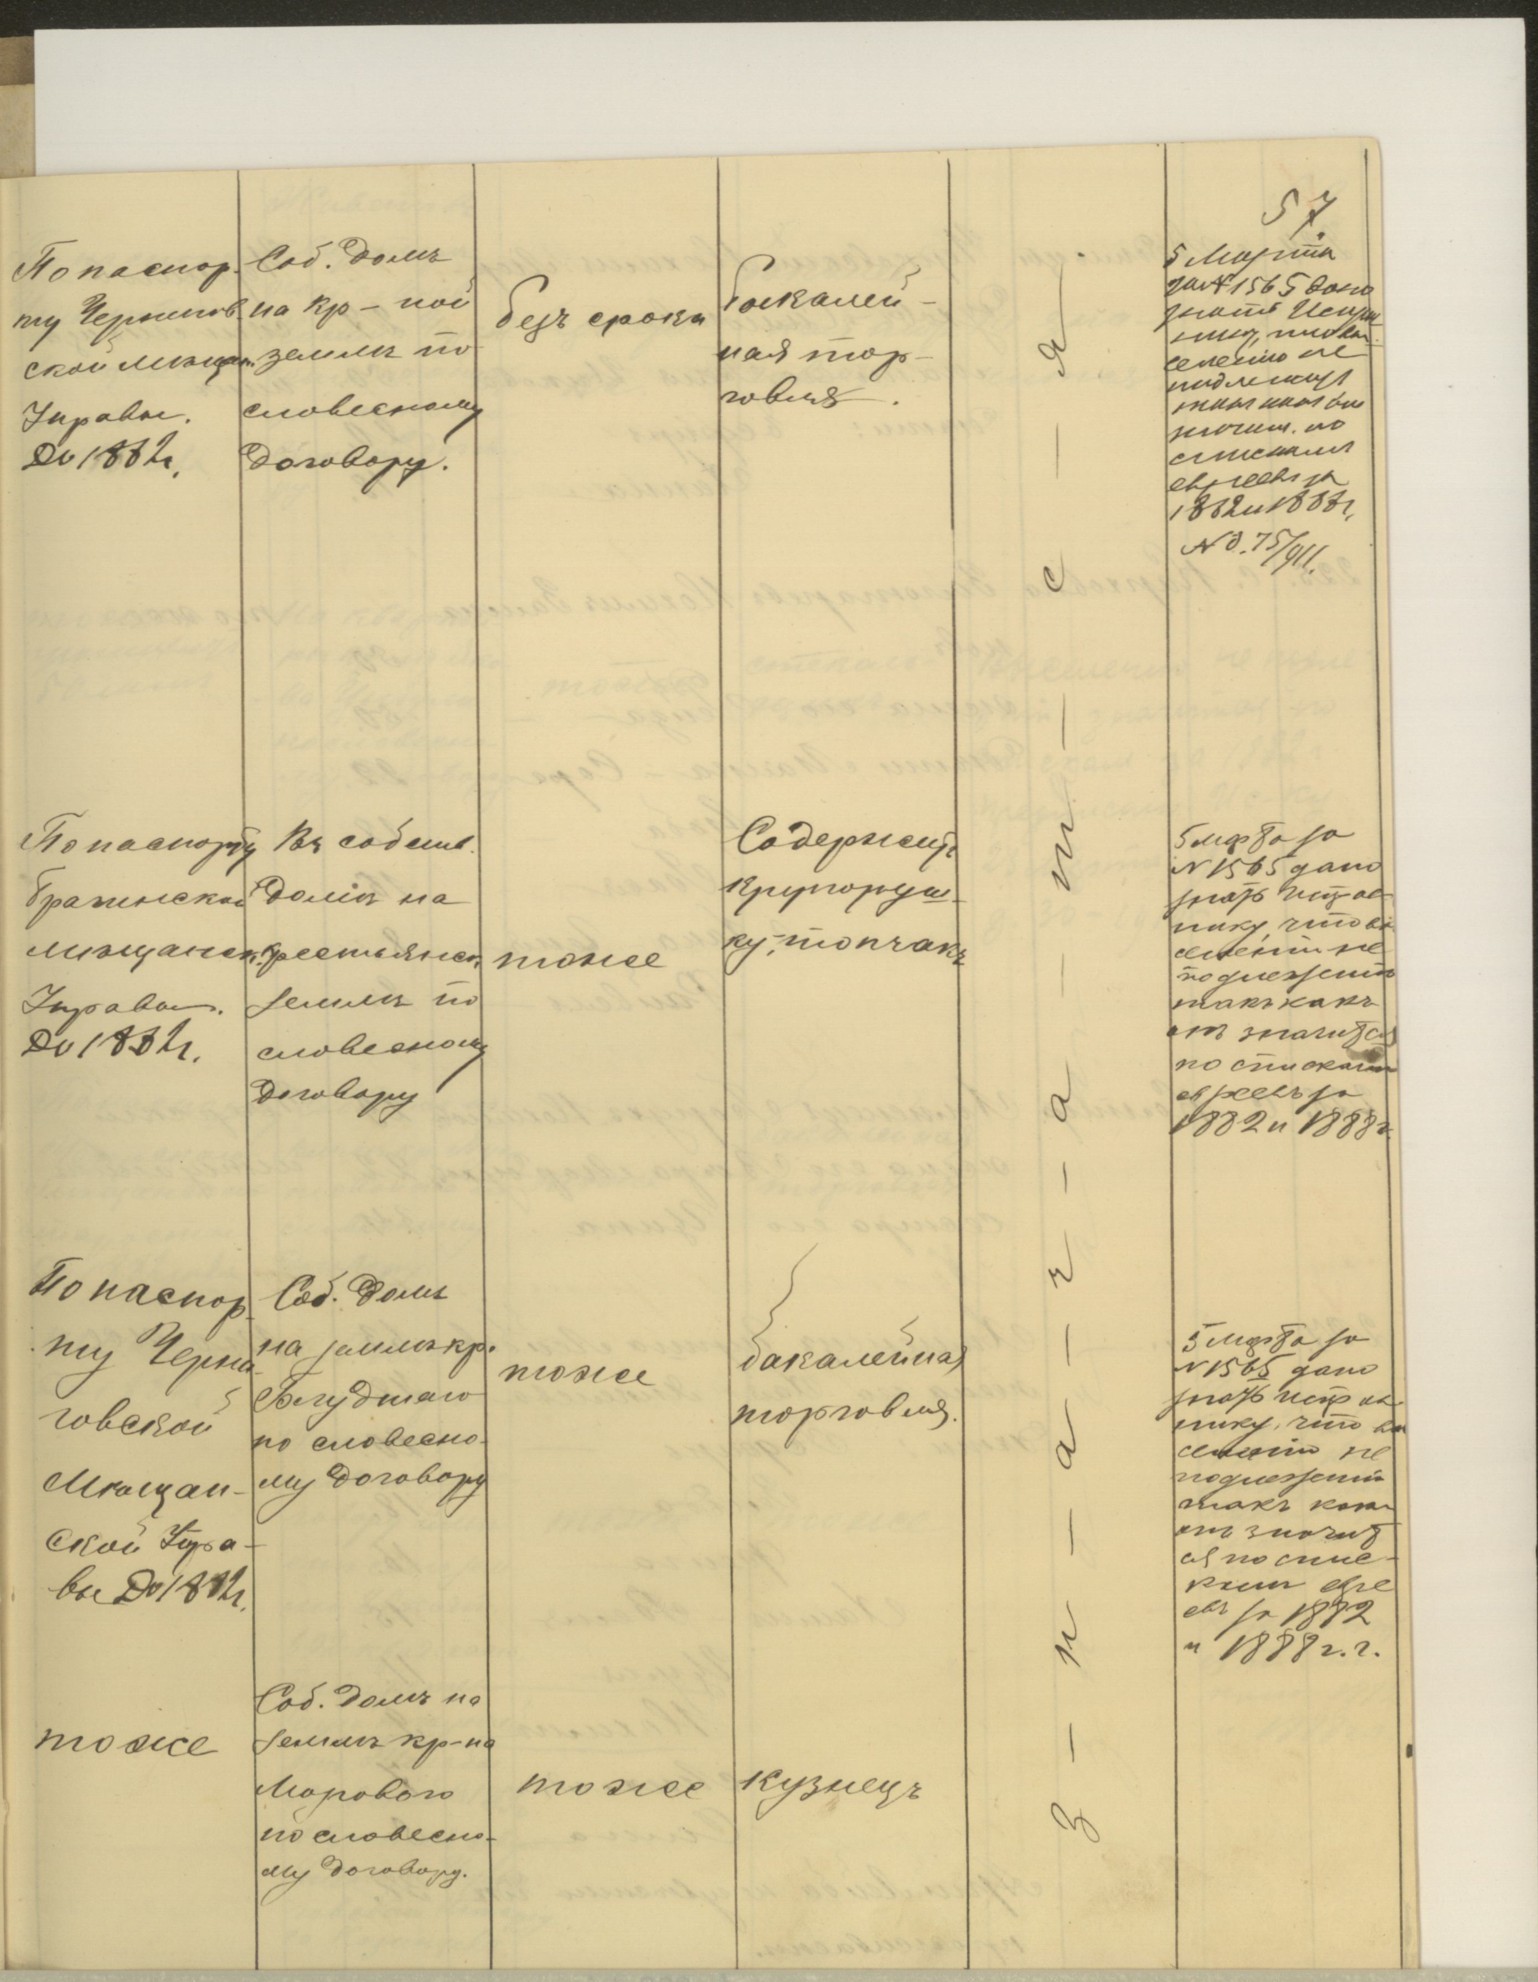 57
По паспор-
ту Чернигов
ской мѣщан.
Управы.
До 1882 г.
Соб. домъ
на кр-ной
землѣ по
словесному
договору.
безъ срока
бакалей-
ная тор-
говля.
5 Марта
за № 1565 дано
знать Исправ
нику, что вы
селенію не
подлежитъ
значит. по
спискамъ
евреевъ за
1882 и 1888 г.
№ д. 75/911.
По паспорту
мѣщанск.
Управы.
До 1882 г.
Въ собств.
домѣ на
крестьянск.
землѣ по
словесному
договору
тоже
Содержитъ
крупоруш-
ку, топчакъ
5 марта за
№ 1565 дано
знать исправ
нику, что вы
селенію не
подлежитъ
такъ какъ
онъ значится
по спискамъ
евреевъ за
1882 и 1888 г.
По паспор-
ту Черни-
говской
Мѣщан-
ской Упра-
вы До 1882 г.
Соб. домъ
на землѣ кр.
по словесно-
му договору
тоже
бакалейная
торговля.
5 марта за
№ 1565 дано
знать исправ
нику, что вы
селенію не
подлежитъ
такъ какъ
онъ значит
ся по спис-
камъ евре
евъ за 1882
и 1888 г.г.
тоже
Соб. домъ на
землѣ кр-на
Морового
по словесно-
му договору.
тоже
кузнецъ
З-н-а-ч-а-т-с-я-.